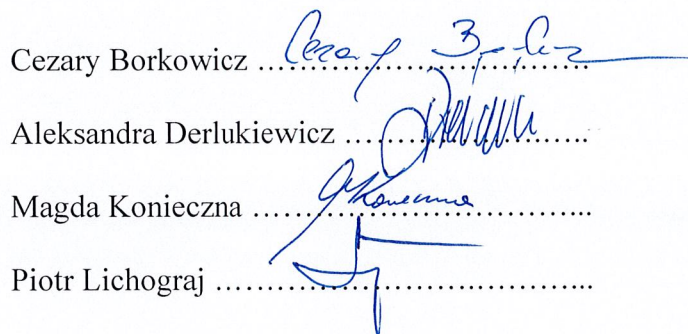 Cezary Borkowicz ..............................
Aleksandra Derlukiewicz ......................
Magda Konieczna ..............................
Piotr Lichograj ..................................